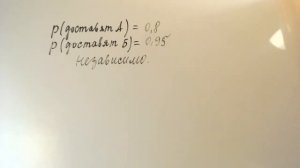 p(доставят A) = 0,8
p(доставят Б) = 0,95
независимо.